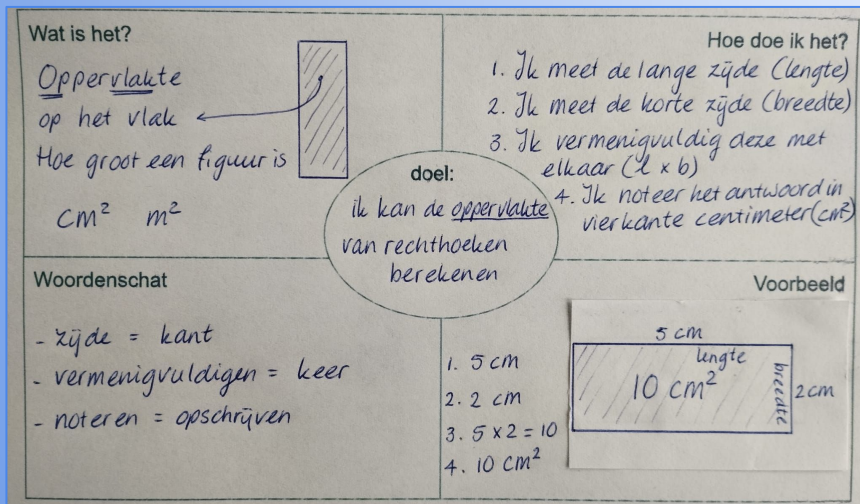 Wat is het?
Oppervlakte
op het vlak
Hoe groot een figuur is
cm² m²
Hoe doe ik het?
1. Ik meet de lange zijde (lengte)
2. Ik meet de korte zijde (breedte)
3. Ik vermenigvuldig deze met
elkaar (l x b)
4. Ik noteer het antwoord in
vierkante centimeter (cm²)
doel:
ik kan de oppervlakte
van rechthoeken
berekenen
Woordenschat
- zijde = kant
- vermenigvuldigen = keer
- noteren = opschrijven
Voorbeeld
1. 5 cm
2. 2 cm
3. 5 x 2 = 10
4. 10 cm²
5 cm
lengte
10 cm²
breedte
2 cm